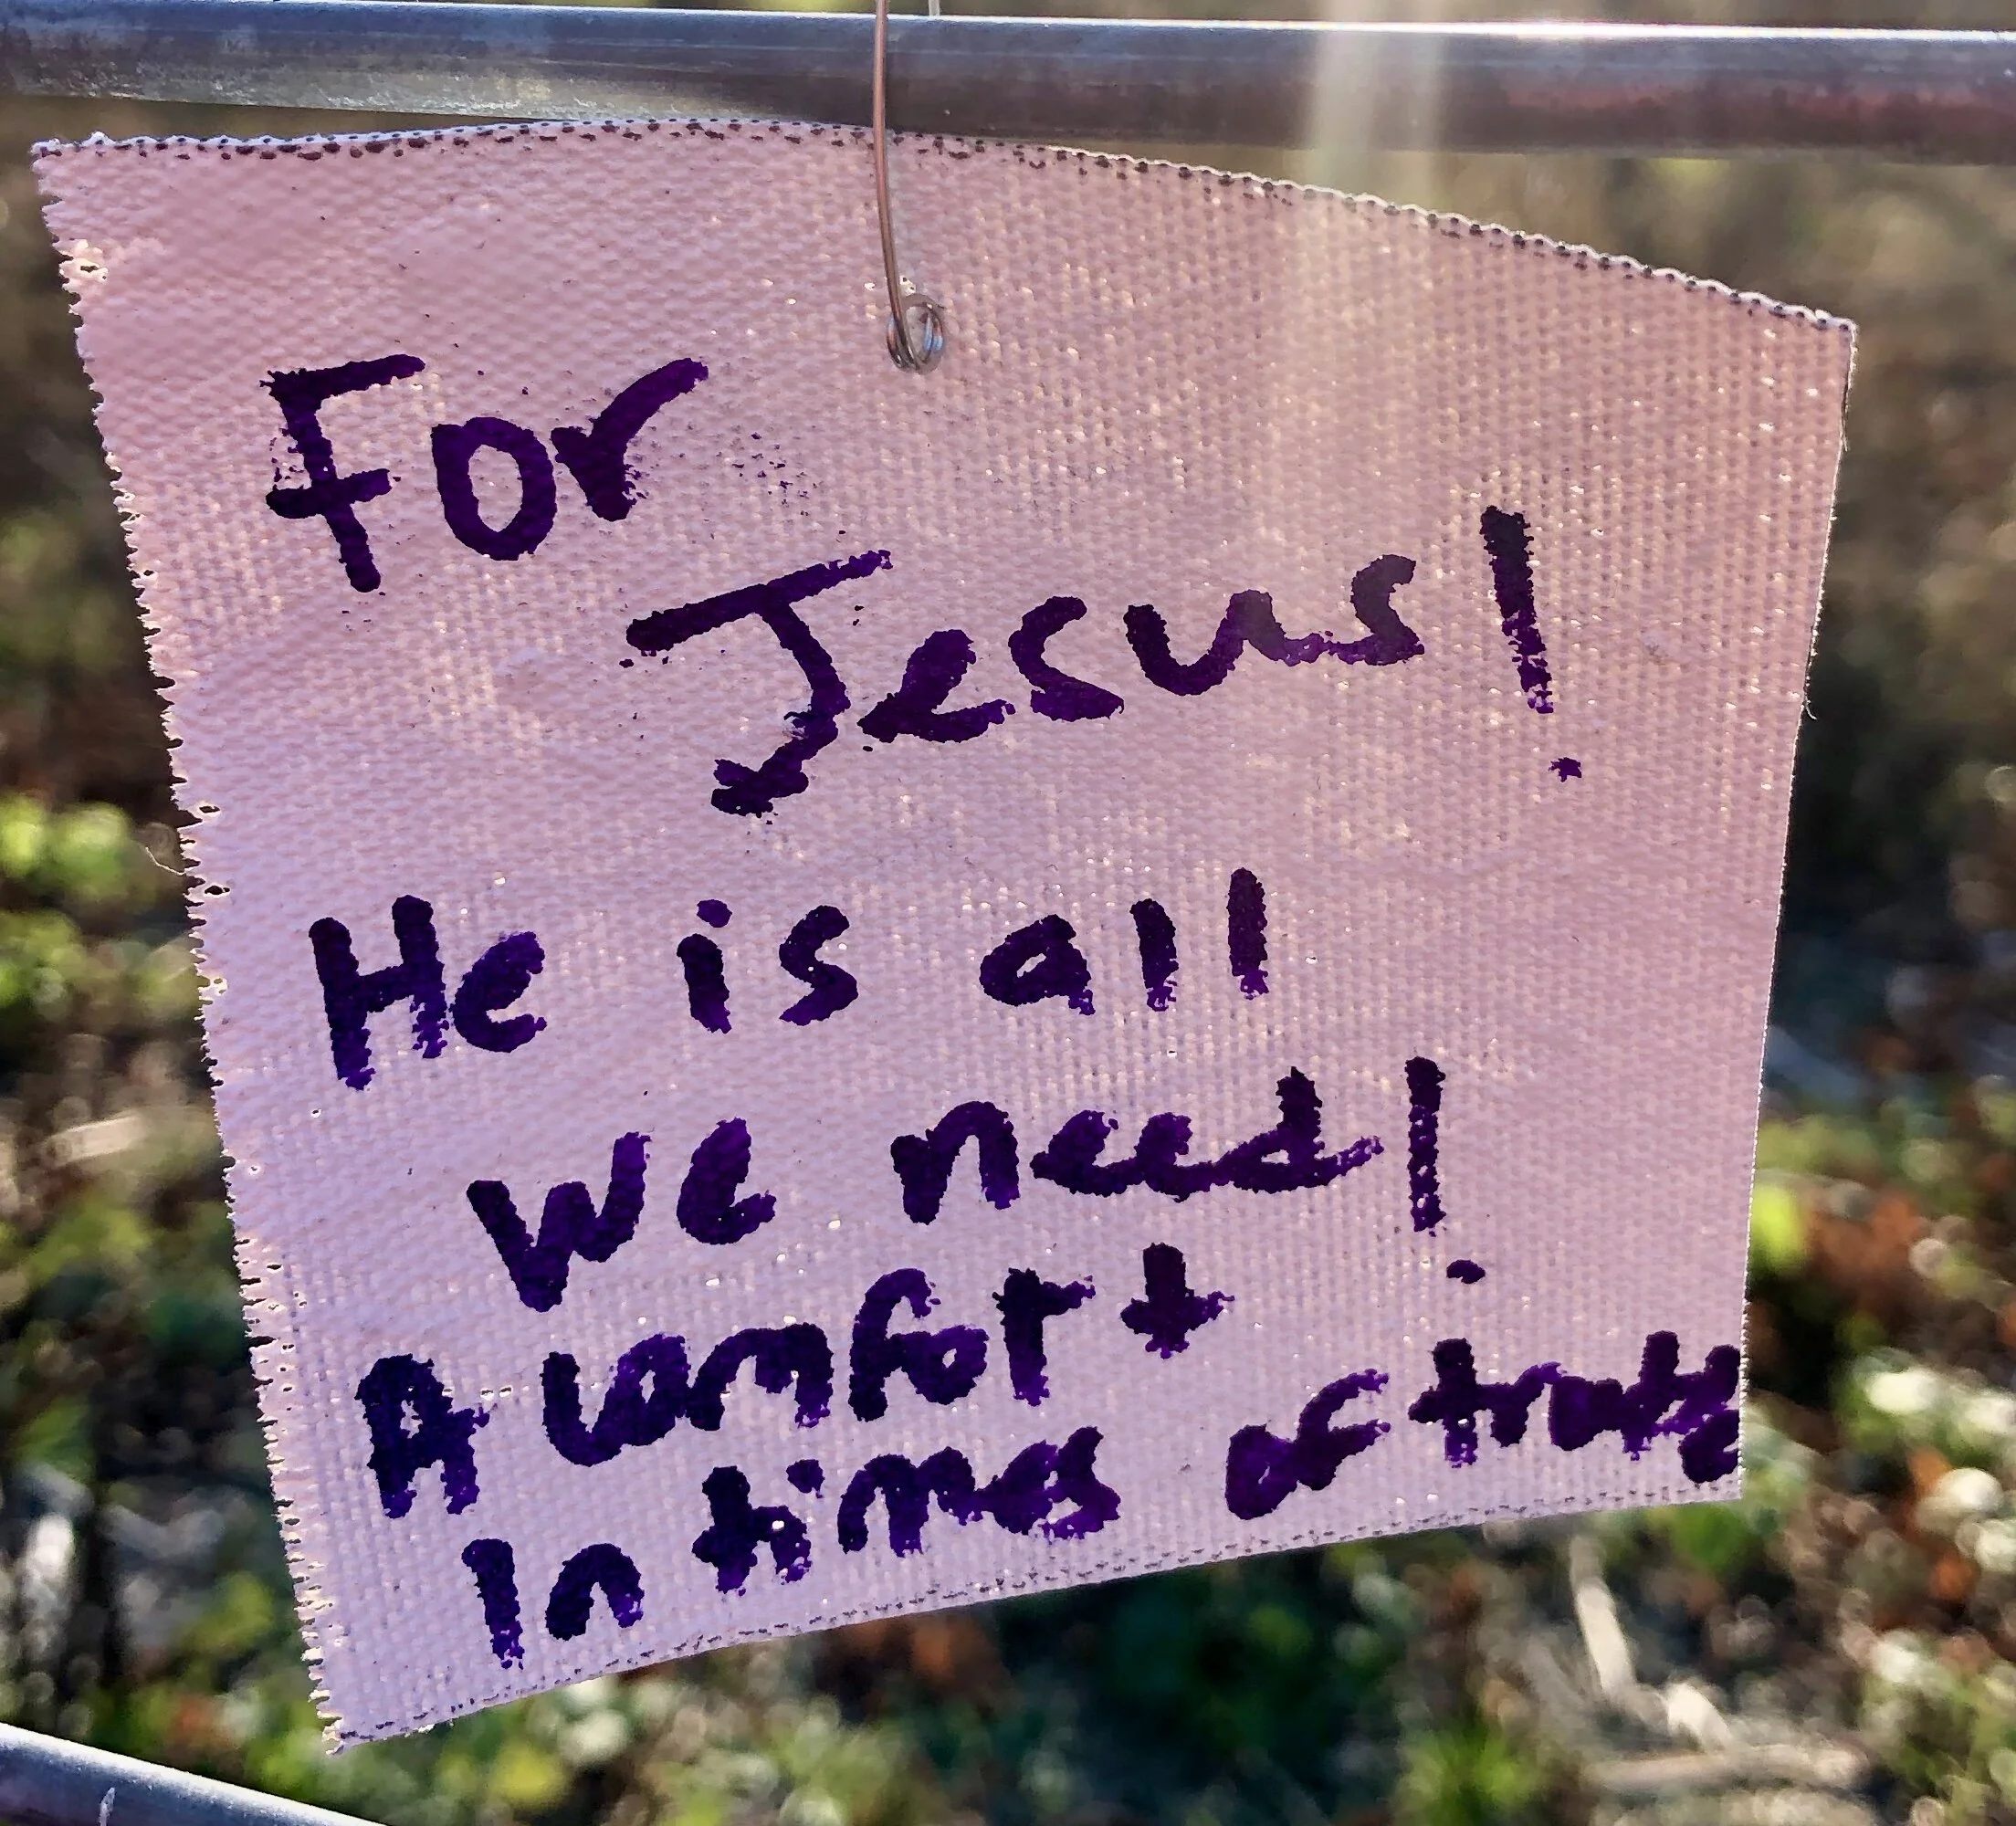 For
Jesus!
He is all
we need!
A comfort
In times of trouble